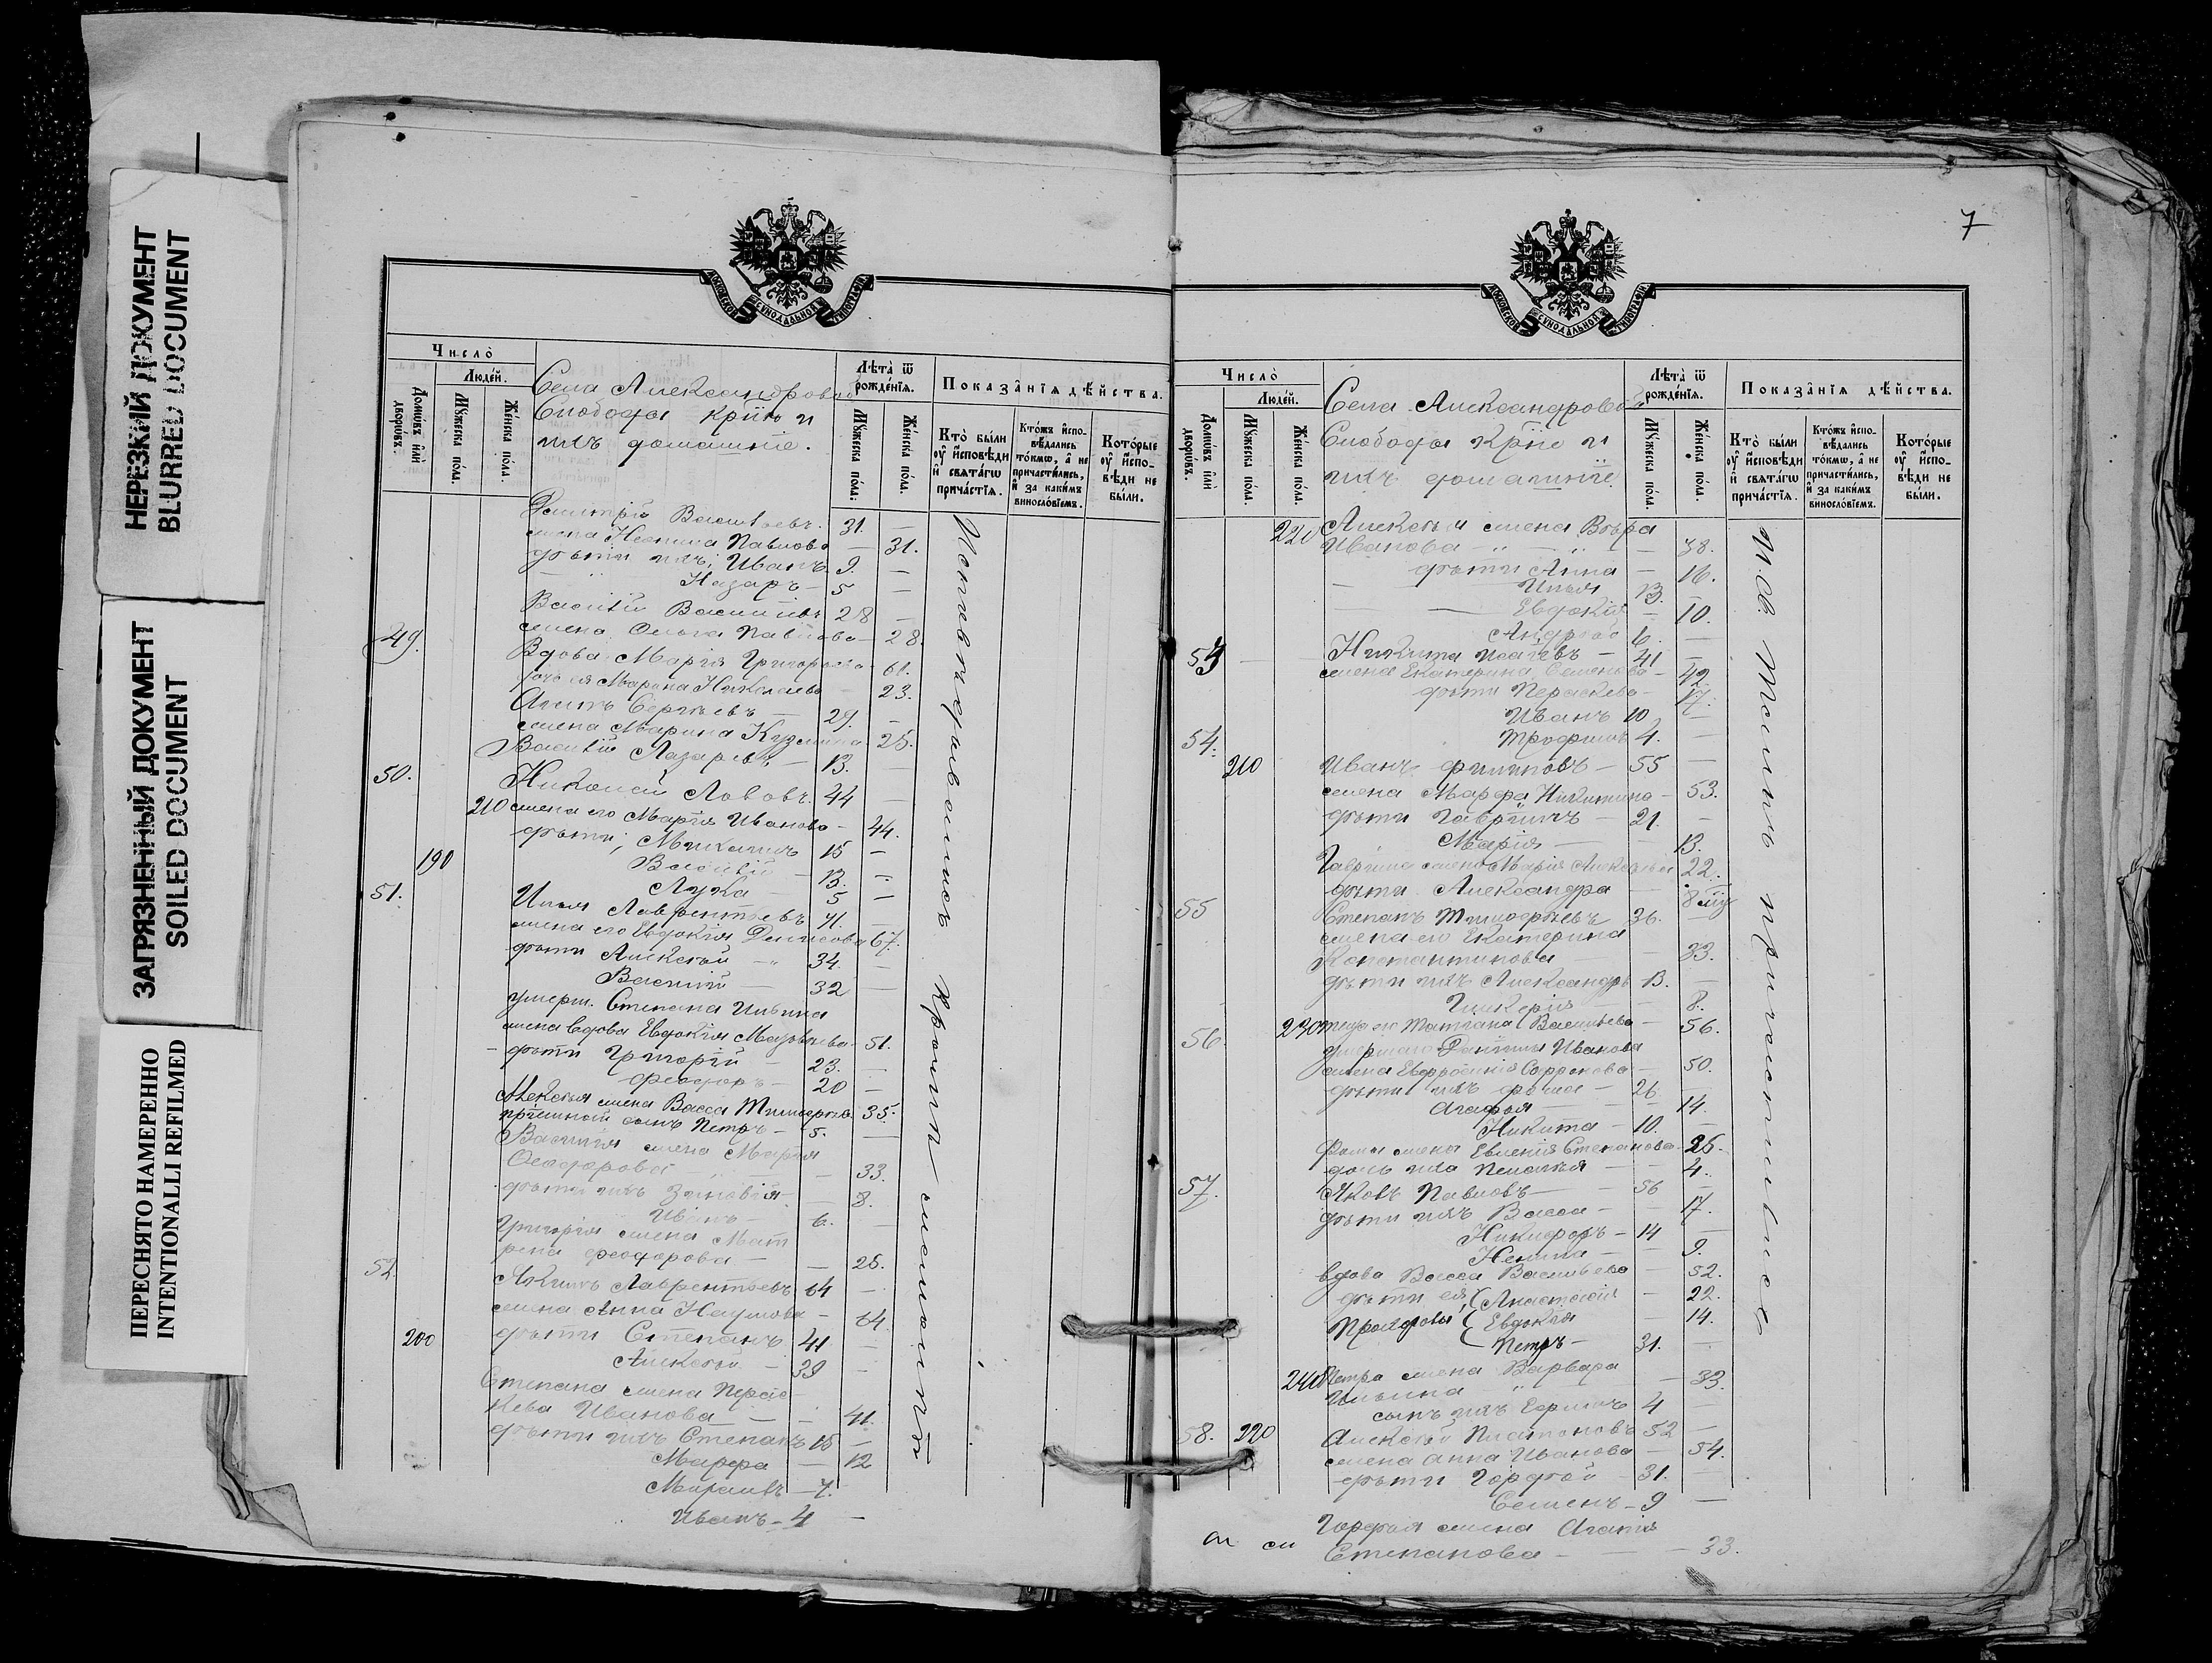 НЕРЕЗКИЙ ДОКУМЕНТ
BLURRED DOCUMENT
ЗАГРЯЗНЕННЫЙ ДОКУМЕНТ
SOILED DOCUMENT
ПЕРЕСНЯТО НАМЕРЕННО
INTENTIONALLI REFILMED
МОСКОВСКОЙ СѴНОДАЛЬНОЙ ТИПОГРАФІИ
Число̀
Люде́й.
Домѡ́въ и҆лѝ дворѡ́въ.
Мꙋ́жеска по́ла.
Же́нска по́ла.
Села Александровой
Слободы крⷭ҇не и
ихъ домашніе.
Лѣ́та ѿ рожде́нїѧ.
Мꙋ́жеска по́ла.
Же́нска по́ла.
Показа̑нїѧ дѣ́йства.
Кто̀ бы́ли оу҆ и҆сповѣ́ди и҆ свѧта́гѡ прича́стїѧ.
Кто́жъ и҆сповѣ́дались то́кмѡ, а҆ не причасти́лись, и҆ за каки́мъ виносло́вїемъ.
Кото́рые оу҆ и҆сповѣ́ди не бы́ли.
Димитрій Васильевъ. 31. —
жена Неонила Павлова — 31.
дѣти ихъ: Иванъ 9. —
Назаръ — 5 —
Василій Васильевъ 28 —
жена Ольга Павлова — 28.
49. Вдова Марія Григорьева 61.
дочь ея Марина Николаева — 23.
Сергѣевъ — 29. —
жена Марина Кузмина 25.
Василій Лазаревъ — 13. —
50. Николай Львовъ. 44 —
210 жена его Марія Иванова — 44.
дѣти; Михаилъ 15 —
190 Василій — 13. —
Лука — 5 —
51. Илья Лаврентьевъ 71. —
жена его Евдокія Денисова 67.
дѣти Алексѣй — 34. —
Василій — 32 —
умерш. Степана Ильина
жена вдова Евдокія — 51.
дѣти Григорій — 23. —
Феодоръ — 20 —
Алексѣя жена Васса 35.
сынъ Петръ — 5. —
Василія жена Марія
Феодорова — — 33
дѣти ихъ Зиновія — — 8.
Иванъ — 6. —
Григорія жена Мат
рена Феодорова — — 25.
52. Акимъ Лаврентьевъ 64 —
жена Анна Наумова — 64.
200 дѣти Степанъ 41 —
Алексѣй — 39 —
Степана жена Перас-
кева Иванова — — 41.
дѣти ихъ Степанъ 15 —
Марфа — 12
— 7.
Иванъ — 4 —
Исповѣдывались
7
МОСКОВСКОЙ СѴНОДАЛЬНОЙ ТИПОГРАФІИ
Число̀
Люде́й.
Домѡ́въ и҆лѝ дворѡ́въ.
Мꙋ́жеска по́ла.
Же́нска по́ла.
Села Александровой
Слободы крⷭ҇не и
ихъ домашніе
Лѣ́та ѿ рожде́нїѧ.
Мꙋ́жеска по́ла.
Же́нска по́ла.
Показа̑нїѧ дѣ́йства.
Кто̀ бы́ли оу҆ и҆сповѣ́ди и҆ свѧта́гѡ прича́стїѧ.
Кто́жъ и҆сповѣ́дались то́кмѡ, а҆ не причасти́лись, и҆ за каки́мъ виносло́вїемъ.
Кото́рые оу҆ и҆сповѣ́ди не бы́ли.
220 Алексѣя жена Вѣра
Иванова — 38.
дѣти Анна — 16.
Илья 13. —
Евдокія — 10.
Андрей 6. —
53 Никита Исаевъ — 41 —
жена Екатерина Семенова — 42.
дѣти Пераскева — 17.
Иванъ 10 —
54. Трофимъ 4. —
210 Иванъ Филиповъ — 55 —
жена Марфа Никитина — 53.
дѣти Гавріилъ — 21. —
Марія — 13.
Гавріила жена Марія 22.
дѣти Александра —
55 Степанъ Тимофѣевъ 36. —
жена его Екатерина
Константинова — 33.
дѣти ихъ Александръ 13. —
Гликерія — 8.
56. 230 теща его Татіана Васильева — 56.
умершаго Иванова
жена Евфросинія — 50.
дѣти ихъ Фома — 26 —
Агафья — — 14.
Никита — 10. —
Фомы жена Евгенія Степанова — 26.
дочь ихъ Пелагея — — 4.
57. Яковъ Павловъ — 56 —
дѣти ихъ Васса — — 17.
Никифоръ — 14 —
— 9.
вдова Васса Васильева — 52.
дѣти ея, { Анастасія — 22.
{ Евдокія — 14.
Петръ — 31. —
240 Петра жена Варвара
Ильина — 33.
сынъ ихъ Ефимъ 4 —
58. 220 Алексѣй Платоновъ 52 —
жена Анна Иванова — 54.
дѣти Гордѣй — 31. —
Семенъ — 9 —
Гордѣя жена Агапія
Степанова — — 33.